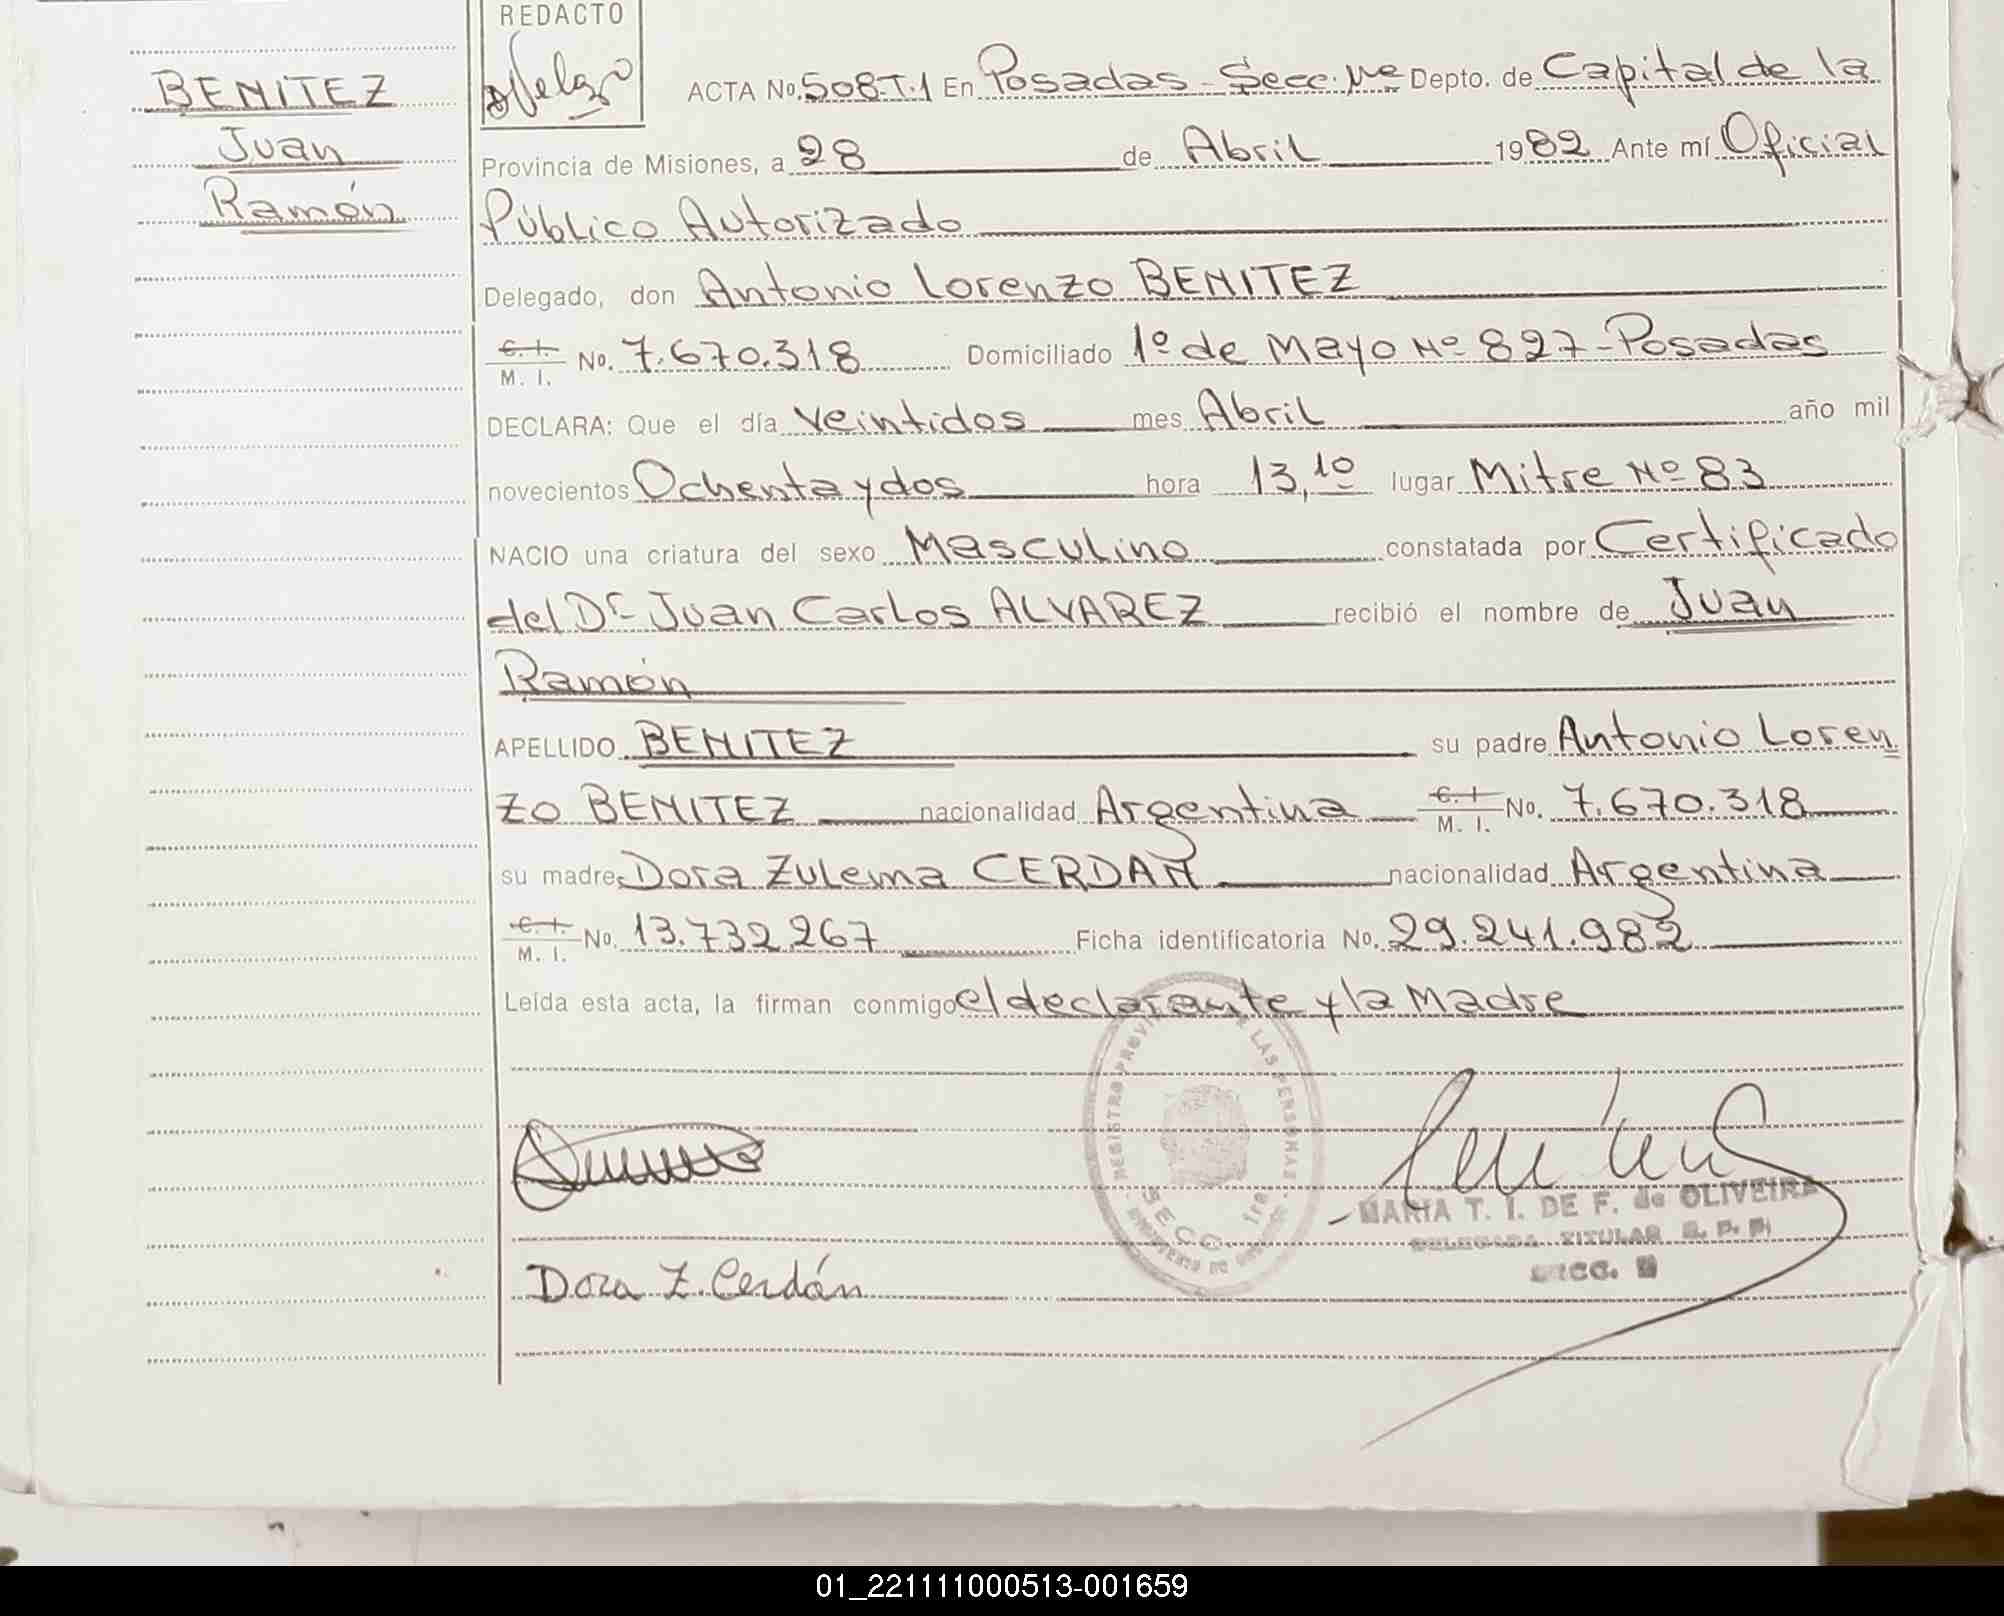 REDACTO
BENITEZ
Juan
Ramón
ACTA No. 508-T.1 En Posadas - Secc. 1ra Depto. de Capital de la
Provincia de Misiones, a 28 de Abril 1982 Ante mí Oficial
Público Autorizado
Delegado, don Antonio Lorenzo BENITEZ
C. I.
M. I. No. 7.670.318 Domiciliado 1º de Mayo Nº 827 - Posadas
DECLARA: Que el día veintidos mes Abril año mil
novecientos Ochenta y dos hora 13,10 lugar Mitre Nº 83
NACIO una criatura del sexo Masculino constatada por Certificado
del Dr Juan Carlos ALVAREZ recibió el nombre de Juan
Ramón
APELLIDO BENITEZ su padre Antonio Loren
zo BENITEZ nacionalidad Argentina C. I.
M. I. No. 7.670.318
su madre Dora Zulema CERDAN nacionalidad Argentina
C. I.
M. I. No. 13.732.267 Ficha identificatoria No. 29.241.982
Leída esta acta, la firman conmigo el declarante y la Madre
REGISTRO PROVINCIAL DE LAS PERSONAS
SECC. 1ra
MARIA T. I. DE F. de OLIVEIRA
DELEGADA TITULAR R. P. P.
SECC.
Dora Z. Cerdán
01_221111000513-001659